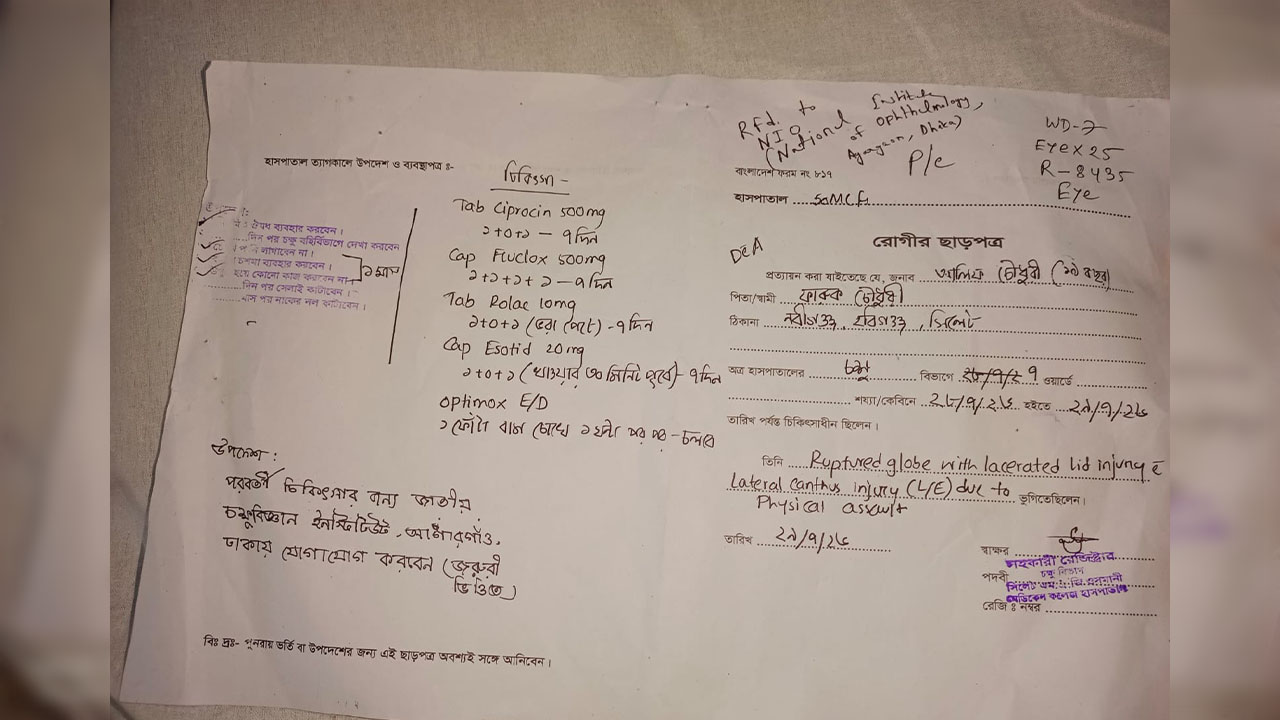 হাসপাতাল ত্যাগকালে উপদেশ ও ব্যবস্থাপত্র ঃ-
চিকিৎসা -
Tab Ciprocin 500mg
১+০+১ — ৭দিন
Cap Fluclox 500mg
১+১+১+১ — ৭দিন
Tab Rolac 10mg
১+০+১ (ভরা পেটে) - ৭দিন
Cap Esotid 20mg
১+০+১ (খাওয়ার ৩০ মিনিট পূর্বে) - ৭দিন
Optimox E/D
১ ফোঁটা বাম চোখে ১ ঘন্টা পর পর - চলবে
ঔষধ ব্যবহার করবেন।
দিন পর চক্ষু বহির্বিভাগে দেখা করবেন
লাগাবেন না।
চশমা ব্যবহার করবেন।
হয়ে কোনো কাজ করবেন না।
দিন পর সেলাই কাটাবেন।
মাস পর নাকের নল কাটাবেন।
১ মাস
উপদেশ :
পরবর্তী চিকিৎসার জন্য জাতীয়
চক্ষুবিজ্ঞান ইনস্টিটিউট, আগারগাঁও,
ঢাকায় যোগাযোগ করবেন (জরুরী
ভিত্তিতে)
বিঃ দ্রঃ- পুনরায় ভর্তি বা উপদেশের জন্য এই ছাড়পত্র অবশ্যই সঙ্গে আনিবেন।
Rfd. to
NIO
(National Institute
of Ophthalmology,
Agargaon, Dhaka)
P/c
WD-7
Eye X 25
R - 8435
Eye
বাংলাদেশ ফরম নং ৮১৭
হাসপাতাল
রোগীর ছাড়পত্র
প্রত্যয়ন করা যাইতেছে যে, জনাব চৌধুরী (১৯ বছর)
পিতা/স্বামী ফারুক চৌধুরী
ঠিকানা নবীগঞ্জ, হবিগঞ্জ, সিলেট
অত্র হাসপাতালের চক্ষু বিভাগে ৭ ওয়ার্ডে
শয্যা/কেবিনে ২৮/৭/২৬ হইতে ২৯/৭/২৬
তারিখ পর্যন্ত চিকিৎসাধীন ছিলেন।
তিনি Ruptured globe with lacerated lid injury c̄
Lateral canthus injury (L/E) due to ভুগিতেছিলেন।
Physical assault
তারিখ ২৯/৭/২৬
স্বাক্ষর
সহকারী রেজিস্ট্রার
পদবী চক্ষু বিভাগ
সিলেট এম.এ.জি ওসমানী
মেডিকেল কলেজ হাসপাতাল
রেজি ঃ নম্বর